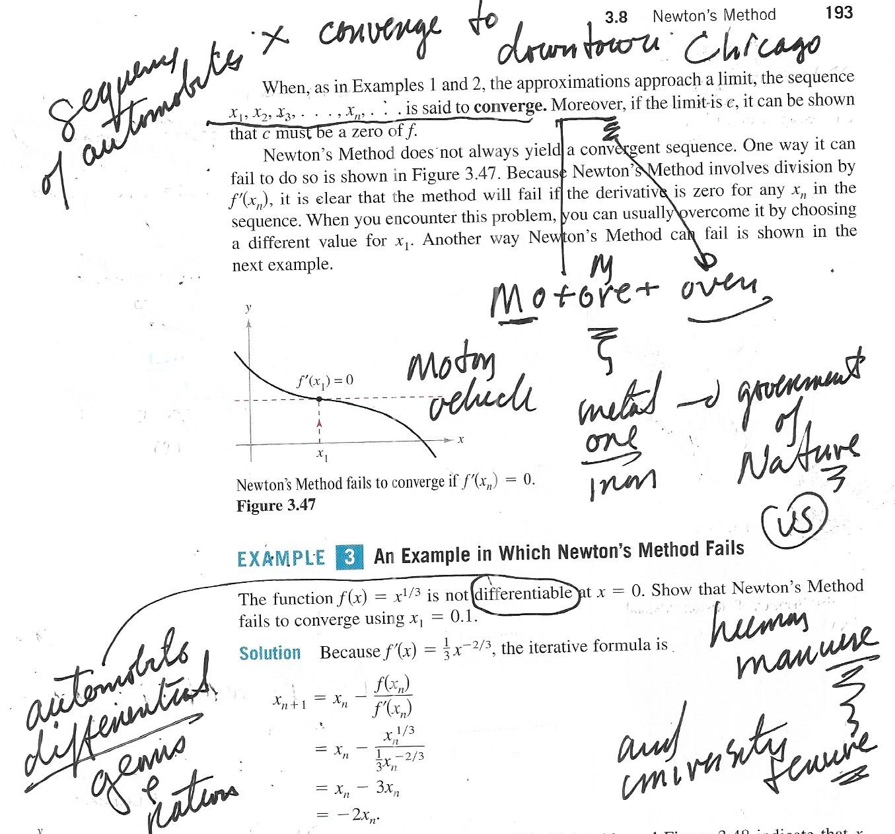 3.8 Newton's Method 193
Sequence
of automobiles x converge to
downtown Chicago
When, as in Examples 1 and 2, the approximations approach a limit, the sequence
x₁, x₂, x₃, . . . , xₙ, . . . is said to converge. Moreover, if the limit is c, it can be shown
that c must be a zero of f.
Newton's Method does not always yield a convergent sequence. One way it can
fail to do so is shown in Figure 3.47. Because Newton's Method involves division by
f′(xₙ), it is clear that the method will fail if the derivative is zero for any xₙ in the
sequence. When you encounter this problem, you can usually overcome it by choosing
a different value for x₁. Another way Newton's Method can fail is shown in the
next example.
oven
y
f′(x₁) = 0
x
x₁
Motor
vehicle
metal → government
of
Nature
one
iron
VS
Newton's Method fails to converge if f′(xₙ) = 0.
Figure 3.47
EXAMPLE 3 An Example in Which Newton's Method Fails
The function f(x) = x^(1/3) is not differentiable at x = 0. Show that Newton's Method
fails to converge using x₁ = 0.1.
Solution Because f′(x) = ⅓x^(−2/3), the iterative formula is
xₙ₊₁ = xₙ − f(xₙ)/f′(xₙ)
= xₙ − xₙ^(1/3)/(⅓xₙ^(−2/3))
= xₙ − 3xₙ
= −2xₙ.
automobile
differential
human
manure
and
university
tenure